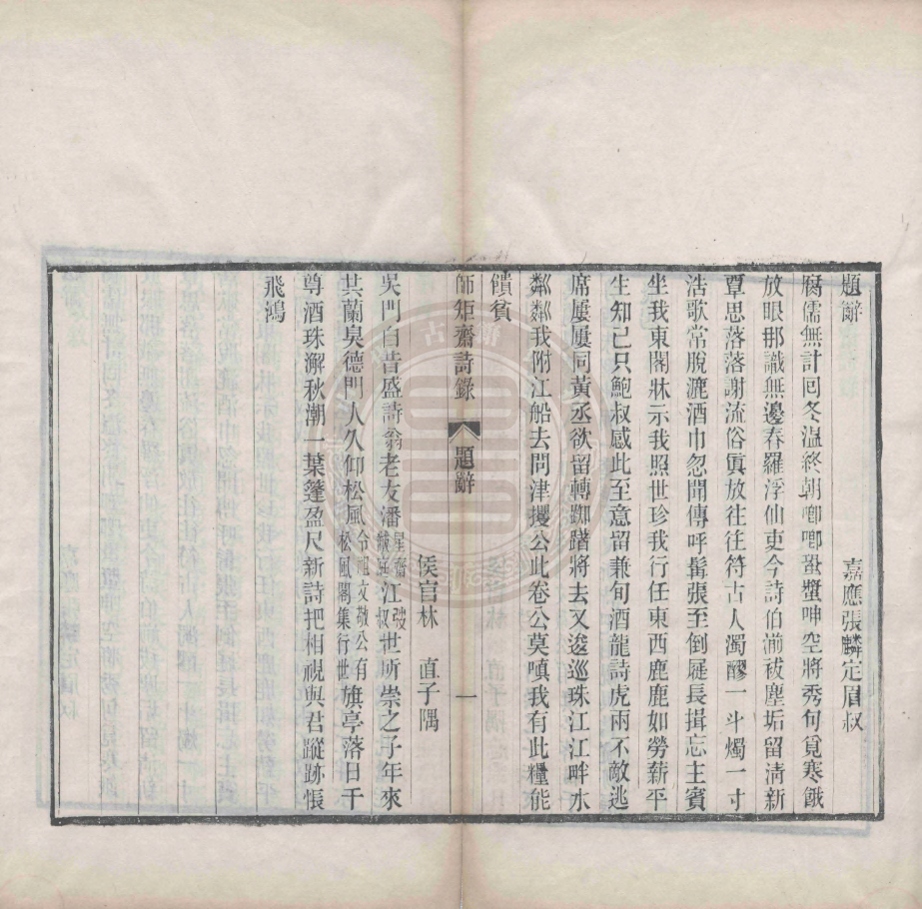 題辭
嘉應張麟定眉叔
腐儒無計回冬溫終朝唧唧蛩蟹呻空將秀句覓寒餓
放眼那識無邊春羅浮仙吏今詩伯湔祓塵垢留淸新
覃思落落謝流俗眞放往往符古人濁醪一斗燭一寸
浩歌常脫漉酒巾忽聞傳呼髯張至倒屣長揖忘主賓
坐我東閣牀示我照世珍我行任東西鹿鹿如勞薪平
生知己只鮑叔感此至意留兼旬酒龍詩虎兩不敵逃
席屢屢同黃丞欲留轉踟躇將去又逡巡珠江江畔水
粼粼我附江船去問津攫公此卷公莫嗔我有此糧能
饋貧
師矩齋詩錄 題辭 一
侯官林 直子隅
吳門自昔盛詩翁老友潘星齋紱庭江弢叔世所崇之子年來
共蘭臭德門人久仰松風令祖文敬公有松風閣集行世旗亭落日千
尊酒珠澥秋潮一葉篷盈尺新詩把相視與君蹤跡悵
飛鴻